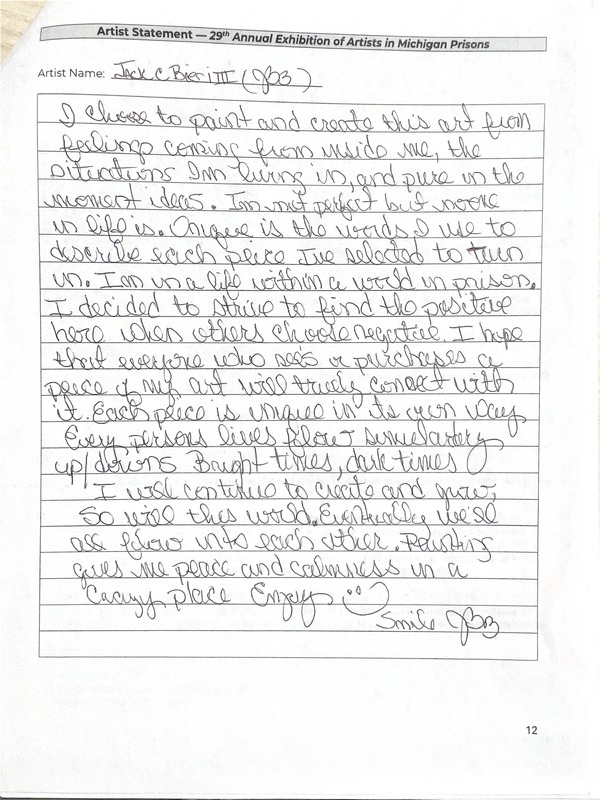 Artist Statement — 29th Annual Exhibition of Artists in Michigan Prisons
Artist Name: Jack C Bieri III (JB3)
I choose to paint and create this art from
feelings coming from inside me, the
situations Im living in, and pure in the
moment ideas. Im not perfect but noone
in life is. Unique is the words I use to
describe each peice I've selected to turn
in. Im in a life within a world in prison.
I decided to strive to find the positive
here when others choose negative. I hope
that everyone who sees or purchases a
peece of my art will truely conect with
it. Each piece is unique in its own way
Every persons lives follow
up/downs Bright times, dark times
I will continue to create and grow,
So will this world. Eventually we'll
all follow into each other. Painting
gives me peace and calmness in a
Crazy place Enjoy
Smile JB3
12